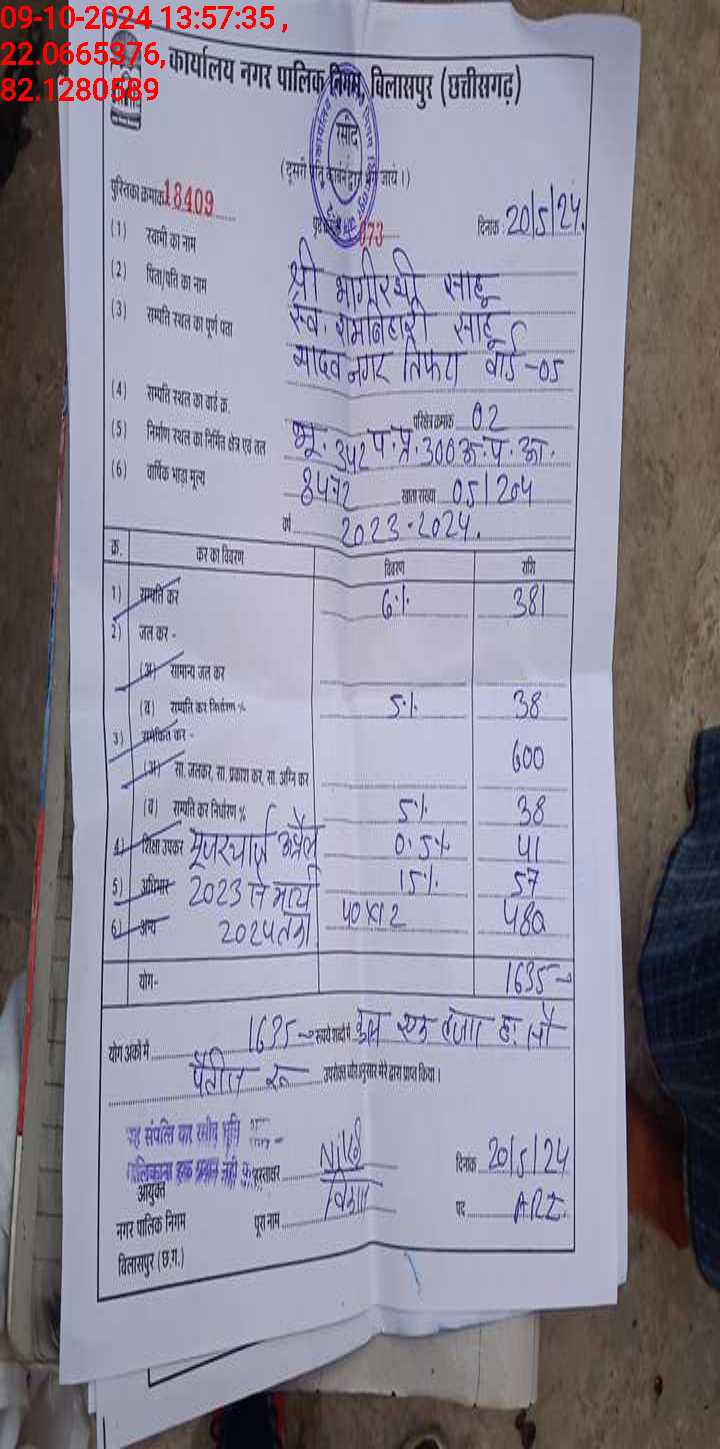 09-10-2024 13:57:35 ,
22.0665376,
82.1280589
कार्यालय नगर पालिक निगम, बिलासपुर (छत्तीसगढ़)
रसीद
पुस्तिका क्रमांक 18409
073
दिनांक : 20/5/24.
(1) स्वामी का नाम श्री भागीरथी साहू
(2) पिता/पति का नाम स्व. रामबिहारी साहू
(3) सम्पति स्थल का पूर्ण पता यादव नगर तिफरा वार्ड -05
(4) सम्पति स्थल का वार्ड क्र. परिक्षेत्र क्रमांक 02
(5) निर्माण स्थल का निर्मित क्षेत्र एवं तल भू. 342 प.प्र. 300
(6) वार्षिक भाड़ा मूल्य 8472 खाता संख्या 05/204
वर्ष 2023-2024.
क्र. कर का विवरण विवरण राशि
1) सम्पति कर 6% 381
2) जल कर -
(अ) सामान्य जल कर
(ब) सम्पति कर निर्धारण % 5% 38
3) समेकित कर -
(अ) सा. जलकर, सा. प्रकाश कर, सा. अग्नि कर 600
(ब) सम्पति कर निर्धारण % 5% 38
4) शिक्षा उपकर यूजरचार्ज अप्रैल 0.5% 41
5) अधिभार 2023 से मार्च 15% 57
6) अन्य 2024 तक 40X12 480
योग- 1635
योग अंको में 1635 रूपये शब्दों में कुल एक हजार छः सौ
पैंतीस रू उपरोक्त योग अनुसार मेरे द्वारा प्राप्त किया ।
यह संपत्ति कर रसीद भूमि
मालिकाना हक प्रदान नहीं
हस्ताक्षर
दिनांक 20/5/24
आयुक्त
नगर पालिक निगम
बिलासपुर (छ.ग.)
पूरा नाम विकास
पद ARI